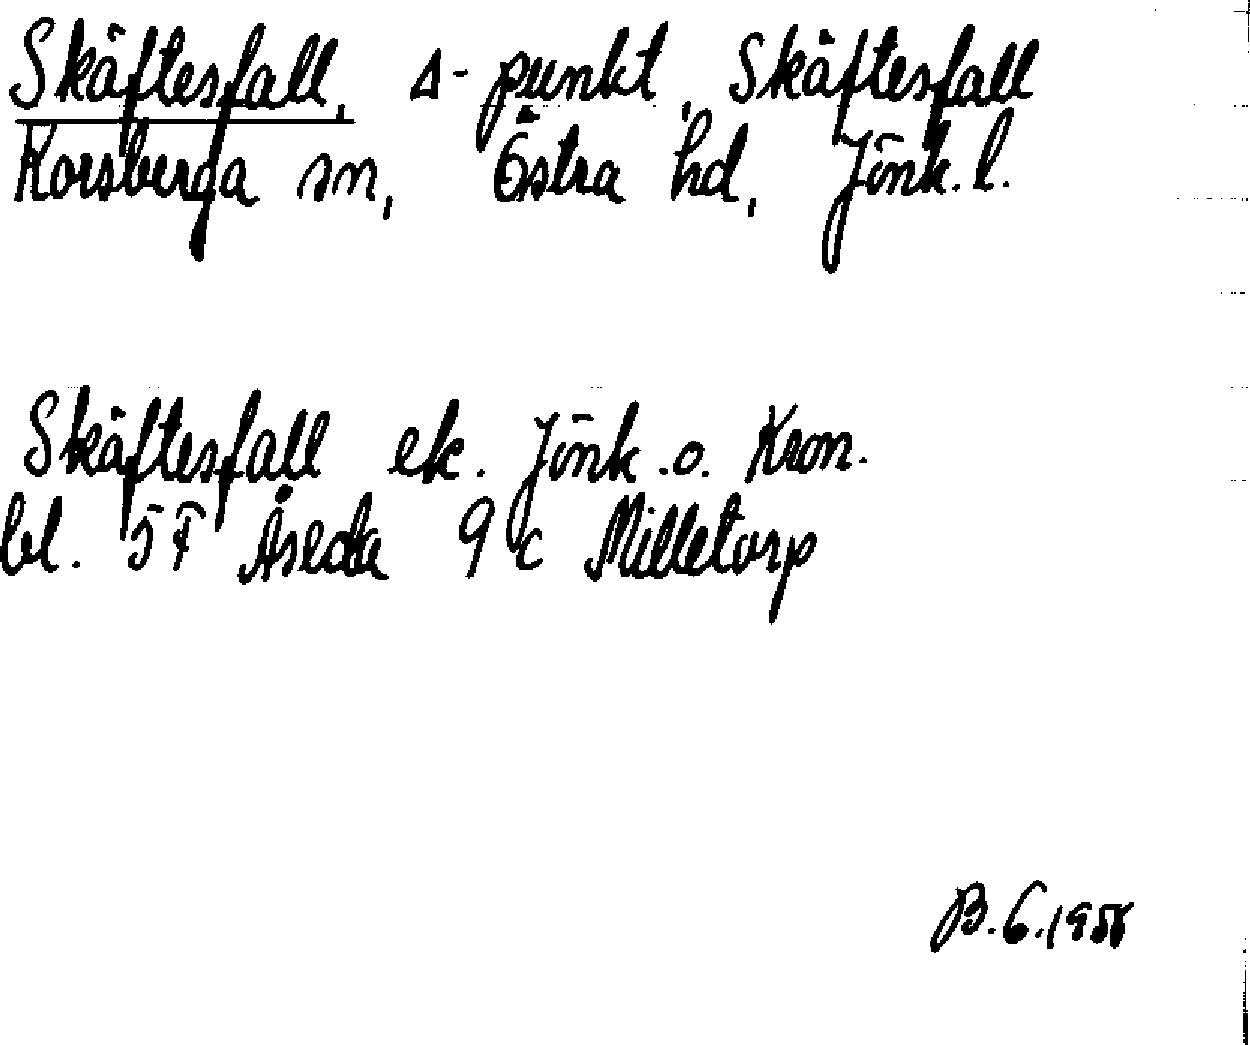 Skäftesfall, Δ-punkt, Skäftesfall
Korsberga sn, Östra hd, Jönk. l.
Skäftesfall ek. Jönk. o. Kron.
bl. 5F Åseda 9c Milletorp
B.G.